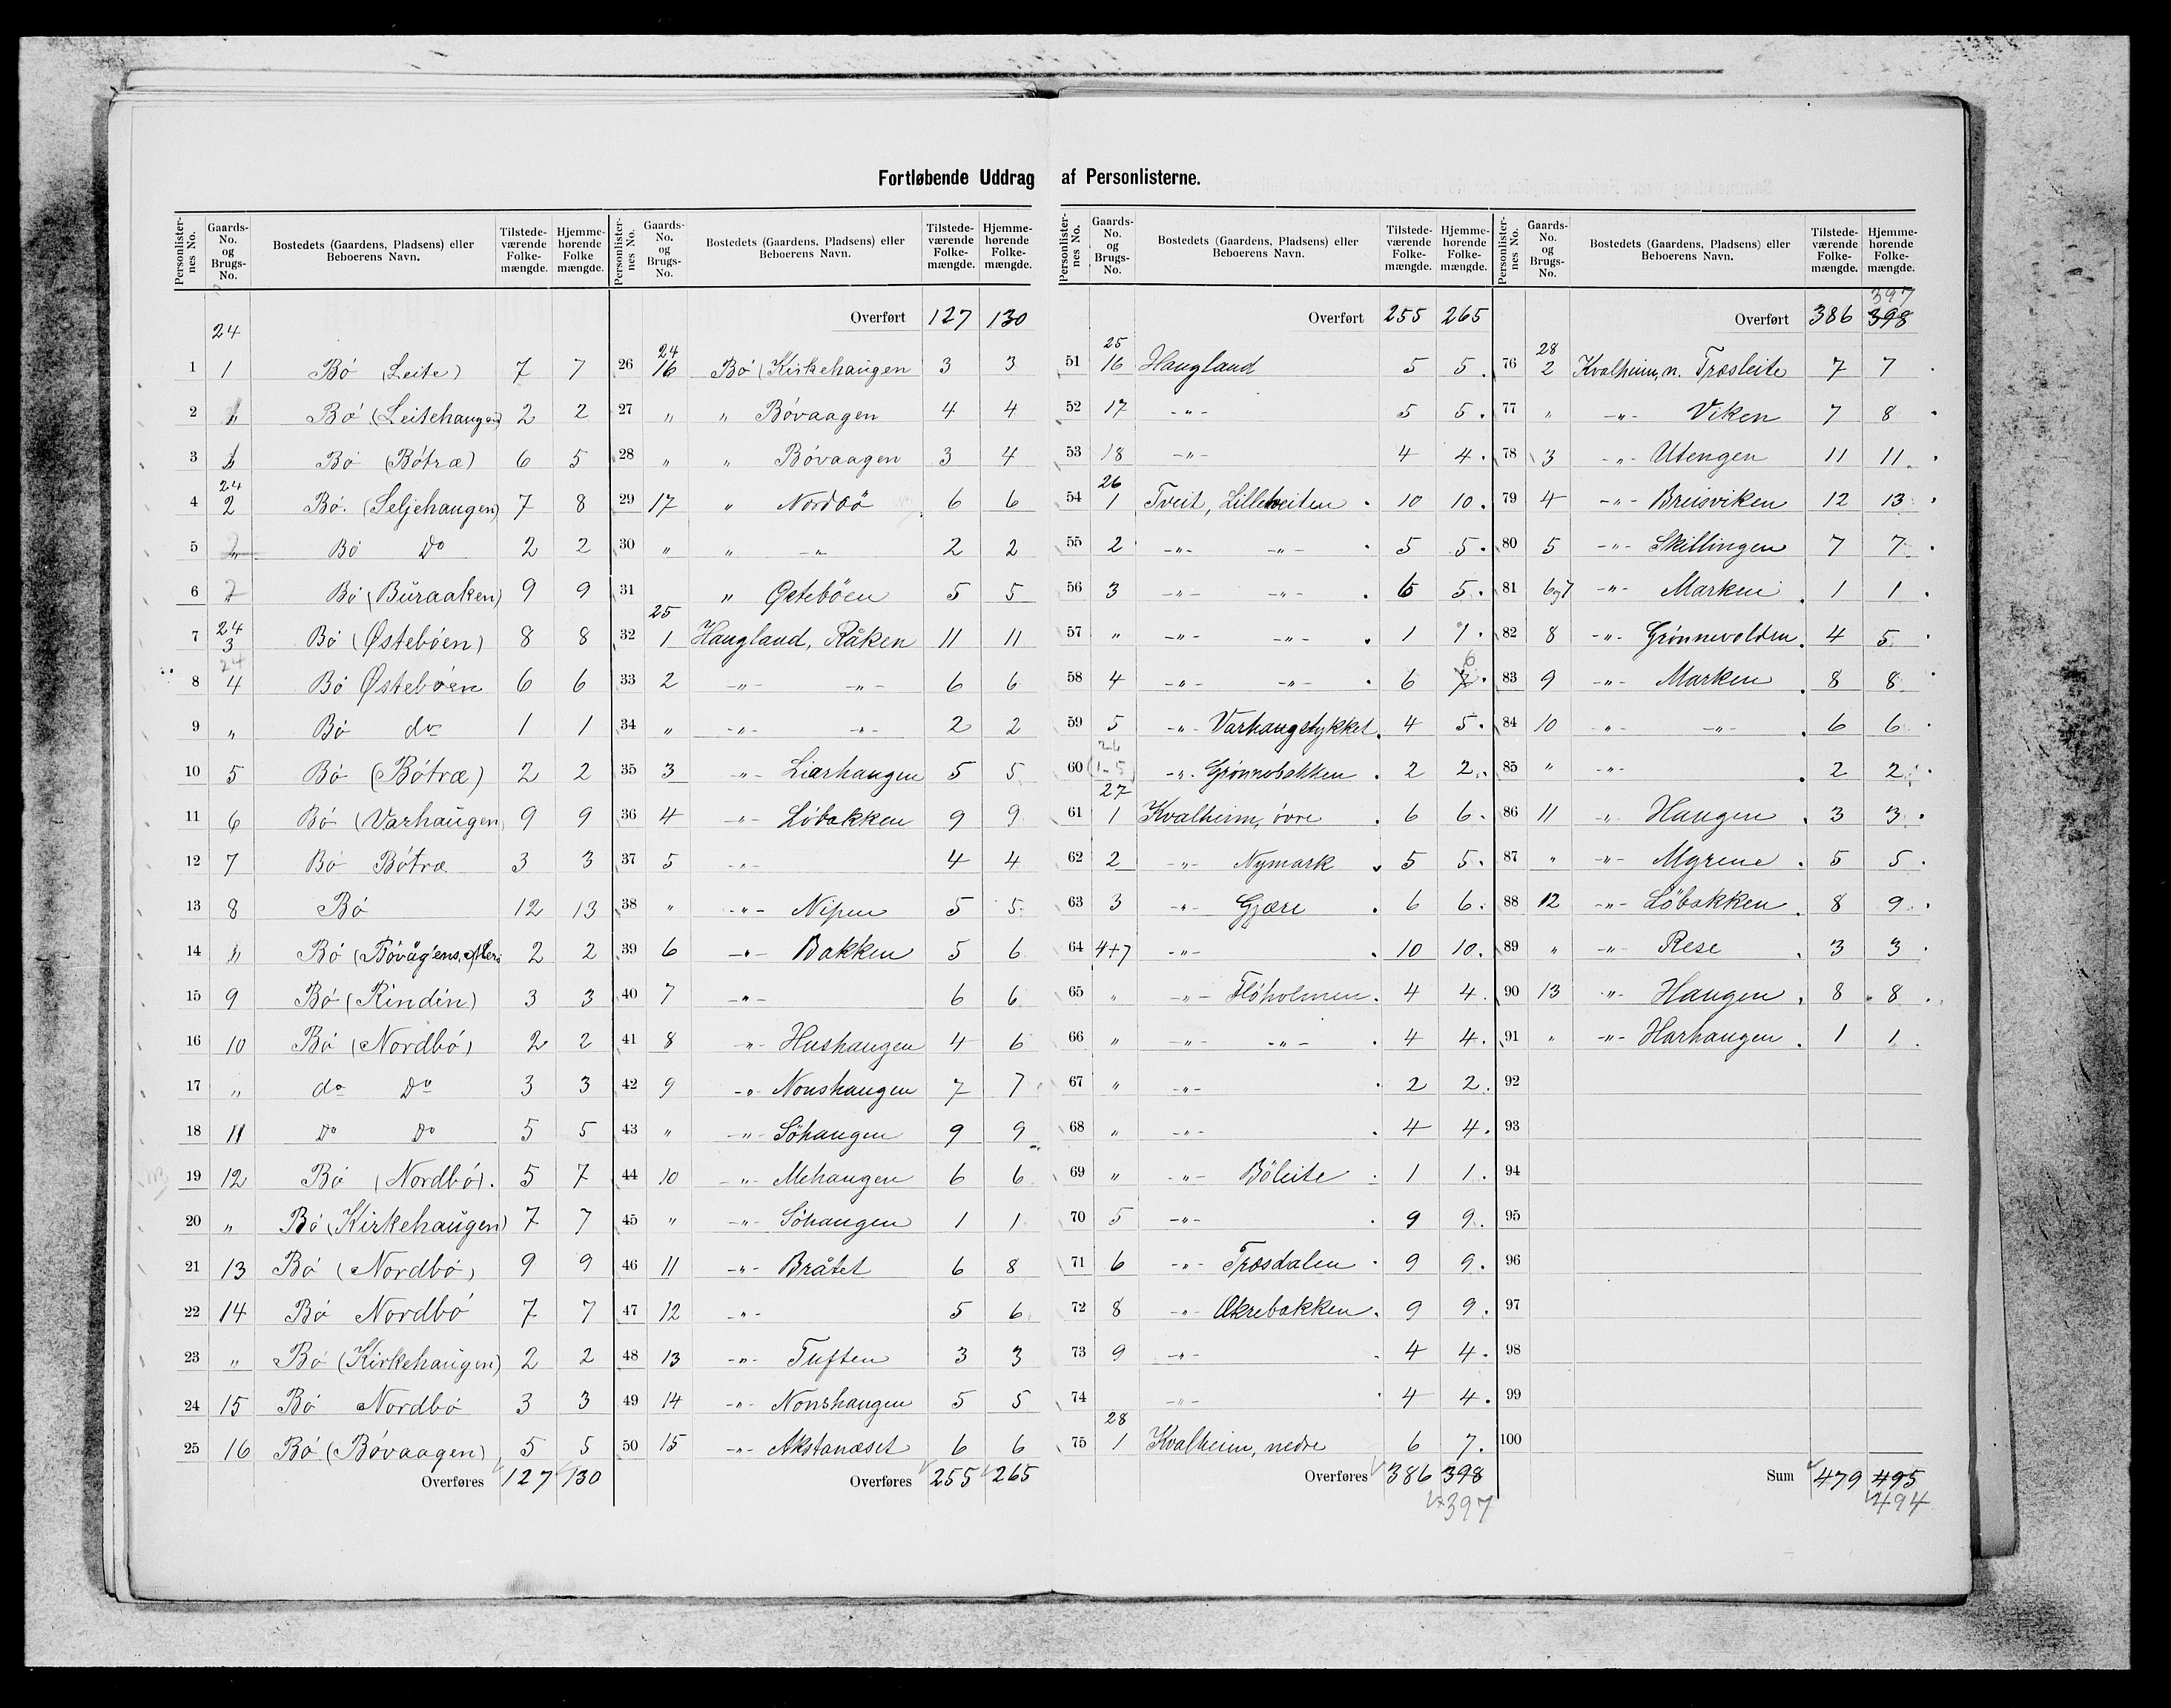 Fortløbende Uddrag af Personlisterne.
Personlisternes No. Gaards-No. og Brugs-No. Bostedets (Gaardens, Pladsens) eller Beboerens Navn. Tilstedeværende Folkemængde. Hjemmehørende Folkemængde.
24
1 1 Bø (Leite) 7 7
2 " Bø (Leitehaugen) 2 2
3 " Bø (Bøtræ) 6 5
24
4 2 Bø. (Seljehaugen) 7 8
5 " Bø Do 2 2
6 " Bø (Buraaken) 9 9
24
7 3 Bø (Østebøen) 8 8
24
8 4 Bø Østebøen 6 6
9 " Bø do 1 1
10 5 Bø (Bøtræ) 2 2
11 6 Bø (Varhaugen) 9 9
12 7 Bø Bøtræ 3 3
13 8 Bø 12 13
14 " Bø 2 2
15 9 Bø (Rindin) 3 3
16 10 Bø (Nordbø) 2 2
17 " do Do 3 3
18 11 Do Do 5 5
19 12 Bø (Nordbø). 5 7
20 " Bø (Kirkehaugen) 7 7
21 13 Bø (Nordbø) 9 9
22 14 Bø Nordbø 7 7
23 " Bø (Kirkehaugen) 2 2
24 15 Bø Nordbø 3 3
25 16 Bø (Bøvaagen) 5 5
Overføres 127 130
Personlisternes No. Gaards-No. og Brugs-No. Bostedets (Gaardens, Pladsens) eller Beboerens Navn. Tilstedeværende Folkemængde. Hjemmehørende Folkemængde.
Overført 127 130
24
26 16 Bø (Kirkehaugen 3 3
27 " " Bøvaagen 4 4
28 " " Bøvaagen 3 4
29 17 " Nordbø 6 6
30 " " -"- 2 2
31 " Østebøen 5 5
25
32 1 Haugland, Råken 11 11
33 2 -"- -"- 6 6
34 " -"- -"- 2 2
35 3 -"- Liarhaugen 5 5
36 4 -"- Løbakken 9 9
37 5 -"- 4 4
38 " -"- Nipen 5 5
39 6 -"- Bakken 5 6
40 7 -"- 6 6
41 8 -"- Hushaugen 4 6
42 9 -"- Nonshaugen 7 7
43 " -"- Söhaugen 9 9
44 10 -"- Mehaugen 6 6
45 " -"- Söhaugen 1 1
46 11 -"- Bråtet 6 8
47 12 -"- 5 6
48 13 -"- Tuften 3 3
49 14 -"- Nonshaugen 5 5
50 15 -"- Akstanæset 6 6
Overføres 255 265
Personlisternes No. Gaards-No. og Brugs-No. Bostedets (Gaardens, Pladsens) eller Beboerens Navn. Tilstedeværende Folkemængde. Hjemmehørende Folkemængde.
Overført 255 265
25
51 16 Haugland 5 5.
52 17 -"- 5 5.
53 18 -"- 4 4.
26
54 1 Tveit, Lilletveiten 10 10.
55 2 -"- -"- 5 5.
56 3 -"- -"- 6 5.
57 " -"- -"- 1 1.
6
58 4 -"- -"- 6 7.
59 5 -"- Varhaugstykket. 4 5.
26
60 (1-5) -"- Grønnebakken 2 2.
27
61 1 Kvalheim, övre 6 6.
62 2 -"- Nymark 5 5.
63 3 -"- Gjære 6 6.
64 4+7 -"- 10 10.
65 " -"- Flöholmen. 4 4.
66 " -"- -"- 4 4.
67 " -"- 2 2.
68 " -"- 4 4.
69 " -"- Böleite 1 1.
70 5 -"- 9 9.
71 6 -"- Træsdalen 9 9.
72 8 -"- Ækrebakken. 9 9.
73 9 -"- 4 4.
74 -"- 4 4.
28
75 1 Kvalheim, nedre 6 7.
Overføres 386 398
397
Personlisternes No. Gaards-No. og Brugs-No. Bostedets (Gaardens, Pladsens) eller Beboerens Navn. Tilstedeværende Folkemængde. Hjemmehørende Folkemængde.
397
Overført 386 398
28
76 2 Kvalheim, n. Træsleite 7 7
77 " -"- Viken 7 8
78 3 -"- Utengen 11 11
79 4 -"- Breisviken 12 13
80 5 -"- Skillingen 7 7
81 6og7 -"- Marken 1 1
82 8 -"- Grønnevolden 4 5
83 9 -"- Marken 8 8
84 10 -"- -"- 6 6
85 " -"- 2 2
86 11 " Haugen 3 3
87 " -"- Mgrene 5 5
88 12 -"- Löbakken 8 9
89 " -"- Rese 3 3
90 13 -"- Haugen 8 8
91 " -"- Harhaugen 1 1
92
93
94
95
96
97
98
99
100
Sum 479 495
494